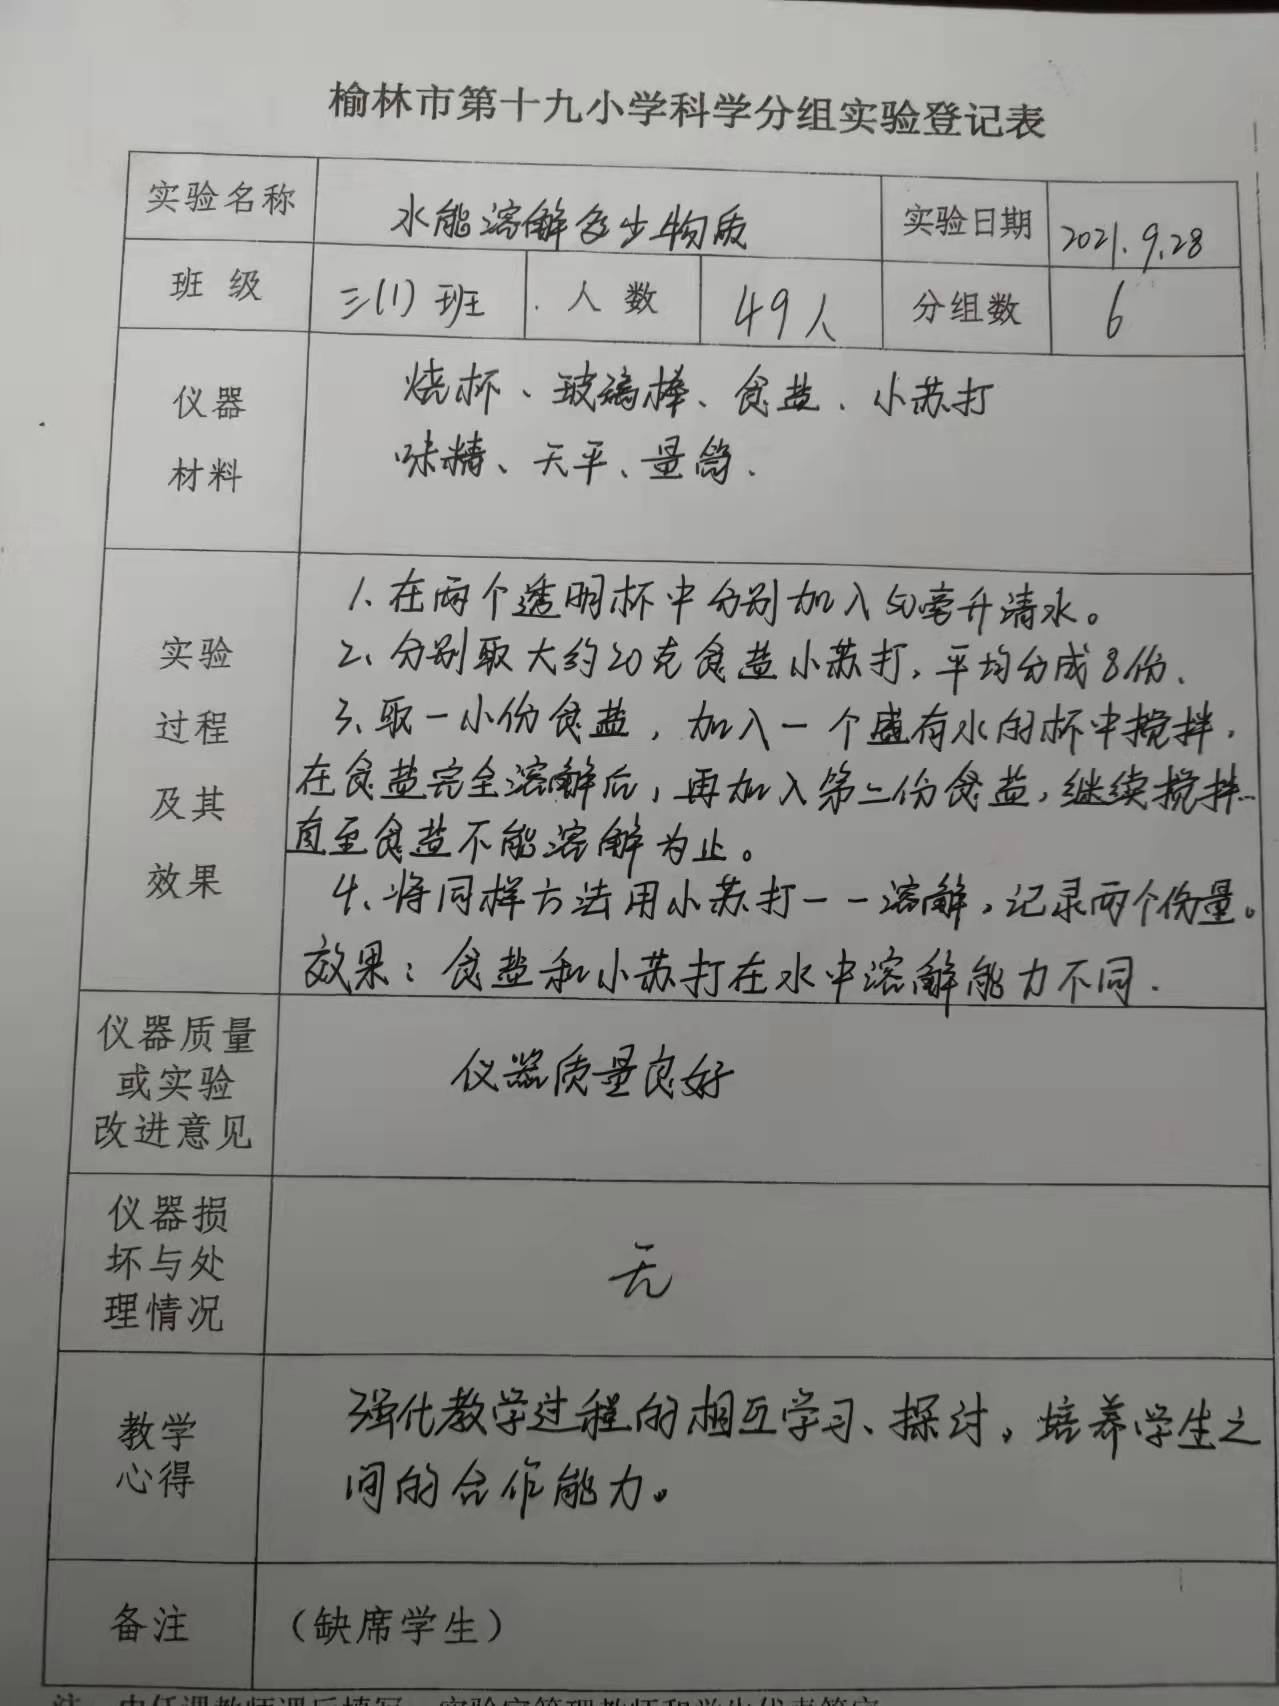 榆林市第十九小学科学分组实验登记表
实验名称 水能溶解多少物质 实验日期 2021.9.28
班 级 三(1)班 人 数 49人 分组数 6
仪器
材料
烧杯、玻璃棒、食盐、小苏打
味精、天平、量筒.
实验
过程
及其
效果
1、在两个透明杯中分别加入50毫升清水。
2、分别取大约20克食盐小苏打,平均分成8份.
3、取一小份食盐,加入一个盛有水的杯中搅拌.
在食盐完全溶解后,再加入第二份食盐,继续搅拌…
直至食盐不能溶解为止。
4、将同样方法用小苏打一一溶解,记录两个份量。
效果:食盐和小苏打在水中溶解能力不同.
仪器质量
或实验
改进意见
仪器质量良好
仪器损
坏与处
理情况
无
教学
心得
强化教学过程的相互学习、探讨,培养学生之
间的合作能力。
备注
（缺席学生）
注 由任课教师课后填写 实验室管理教师和学生代表签字